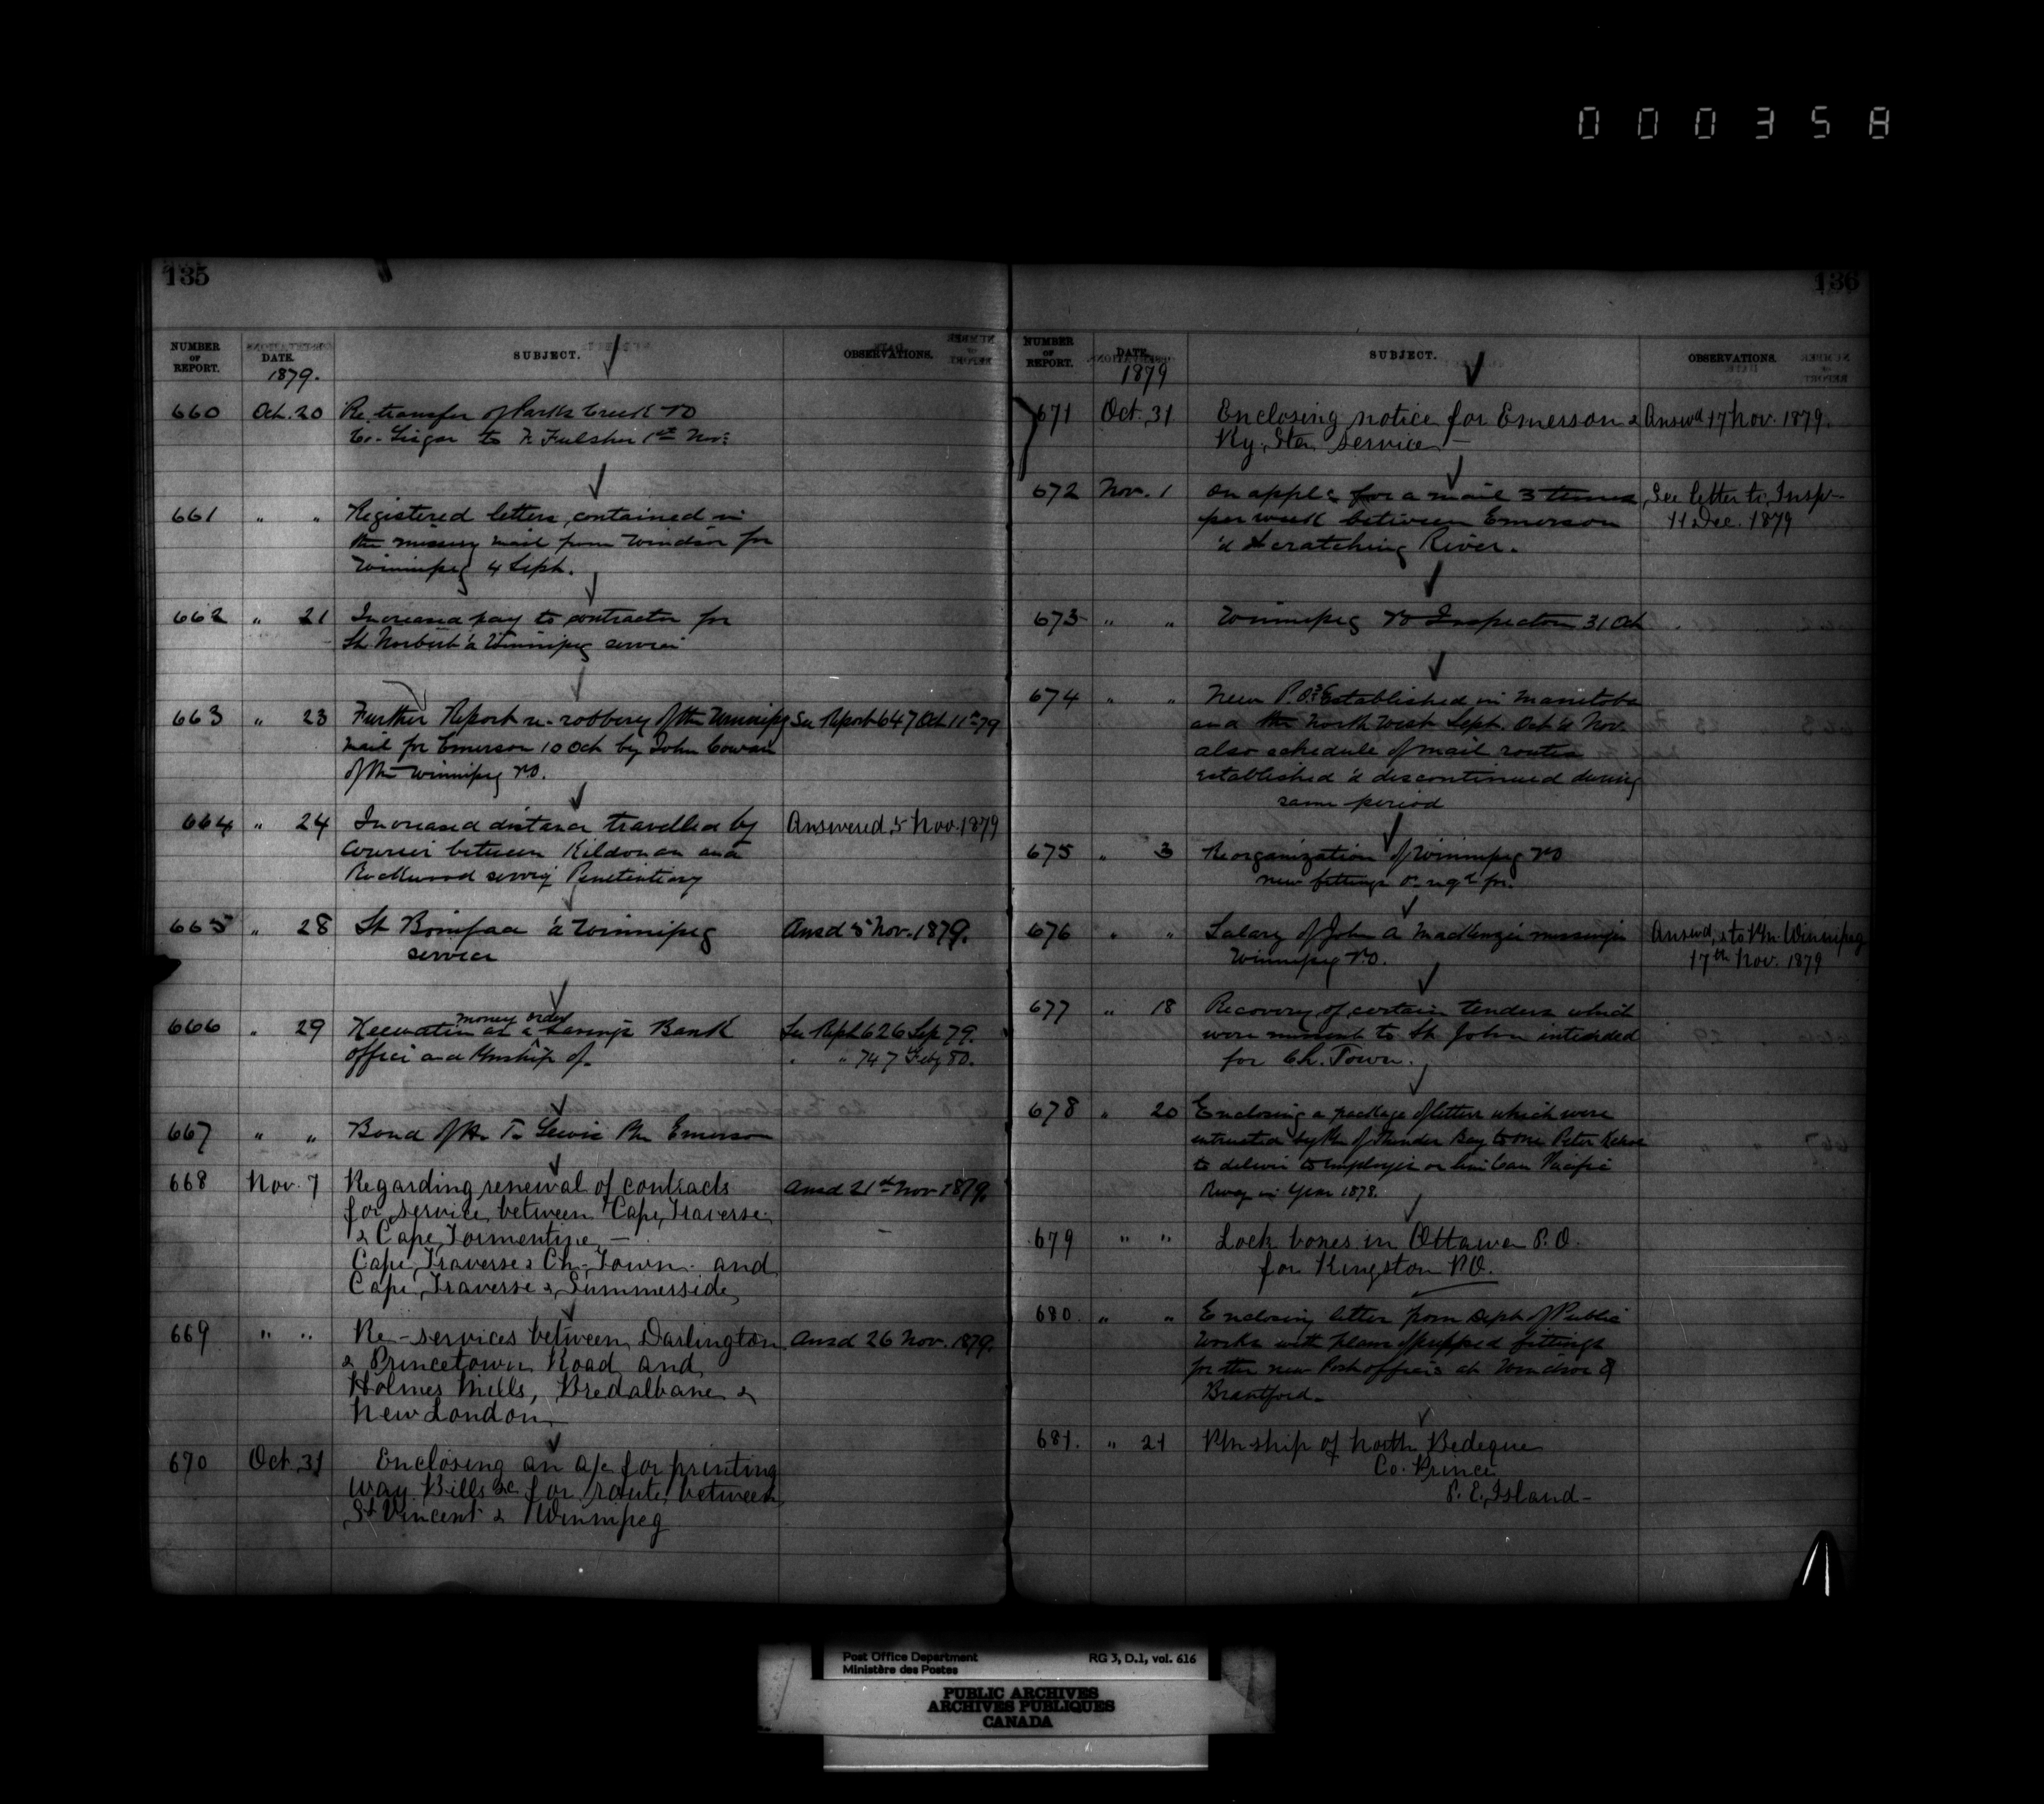 000358
135
NUMBER OF REPORT. DATE. SUBJECT. OBSERVATIONS.
1879.
660 Oct. 20 Re transfer of Parks Creek PO
Co. Lisgar to Fulsher 1st Nov:
661 " " Registered letters contained in
the missing mail from Windsor for
Winnipeg 4 Sept.
662 " 21 Increased pay to contractor for
St Norbert & Winnipeg service
663 " 23 Further Report re- robbery of the Winnipeg See Report 647 Oct 11th 79
mail for Emerson 10 Oct by John Cowan
of the Winnipeg PO.
664 " 24 Increased distance travelled by Answered 5 Nov. 1879
Courier between Kildonan and
Rockwood serving Penitentiary
665 " 28 St Boniface & Winnipeg Ansd 5 Nov. 1879.
service
666 " 29 Keewatin as a money order savings Bank See Rept 626 Sep 79.
office and Pmship of. " " 747 Feby 80.
667 " " Bond of Lewis Pm Emerson
668 Nov. 7 Regarding renewal of contracts Ansd 21st Nov 1879.
for service between Cape Traverse
& Cape Tormentine —
Cape Traverse & Ch-Town and
Cape Traverse & Summerside
669 " " Re-services between Darlington Ansd 26 Nov. 1879.
& Princetown Road and
Holmes Mills, Bredalbane &
New London
670 Oct. 31 Enclosing an a/c for printing
Way Bills &c for route between
St Vincent & Winnipeg
136
NUMBER OF REPORT. DATE. SUBJECT. OBSERVATIONS.
1879
671 Oct. 31 Enclosing notice for Emerson & Answd 17 Nov. 1879.
Ry. Stn service —
672 Nov. 1 On appln for a mail 3 times See letter to Inspr
per week between Emerson 11 Dec. 1879
& Scratching River.
673 " " Winnipeg PO Inspection 31 Oct
674 " " New P.O.s established in Manitoba
and the North West Sept. Oct & Nov.
also schedule of mail routes
established & discontinued during
same period
675 " 3 Reorganization of Winnipeg PO
new fittings &c reqd for.
676 " " Salary of John A MacKenzie messenger Answd, & to Pm Winnipeg
Winnipeg P.O. 17th Nov. 1879
677 " 18 Recovery of certain tenders which
were missent to St. John intended
for Ch. Town.
678 " 20 Enclosing a package of letters which were
entrusted by Pm of Thunder Bay to one Peter
to deliver to employees on line Can Pacific
Rway in Year 1878.
679 " " Lock boxes in Ottawa P.O.
for Kingston P.O.
680 " " Enclosing letter from Dept of Public
Works with plans of fittings
for the new Post offices at Windsor &
Brantford.
681. " 21 Pmship of North Bedeque
Co. Prince
P. E. Island —
Post Office Department RG 3, D.1, vol. 616
Ministère des Postes
PUBLIC ARCHIVES
ARCHIVES PUBLIQUES
CANADA